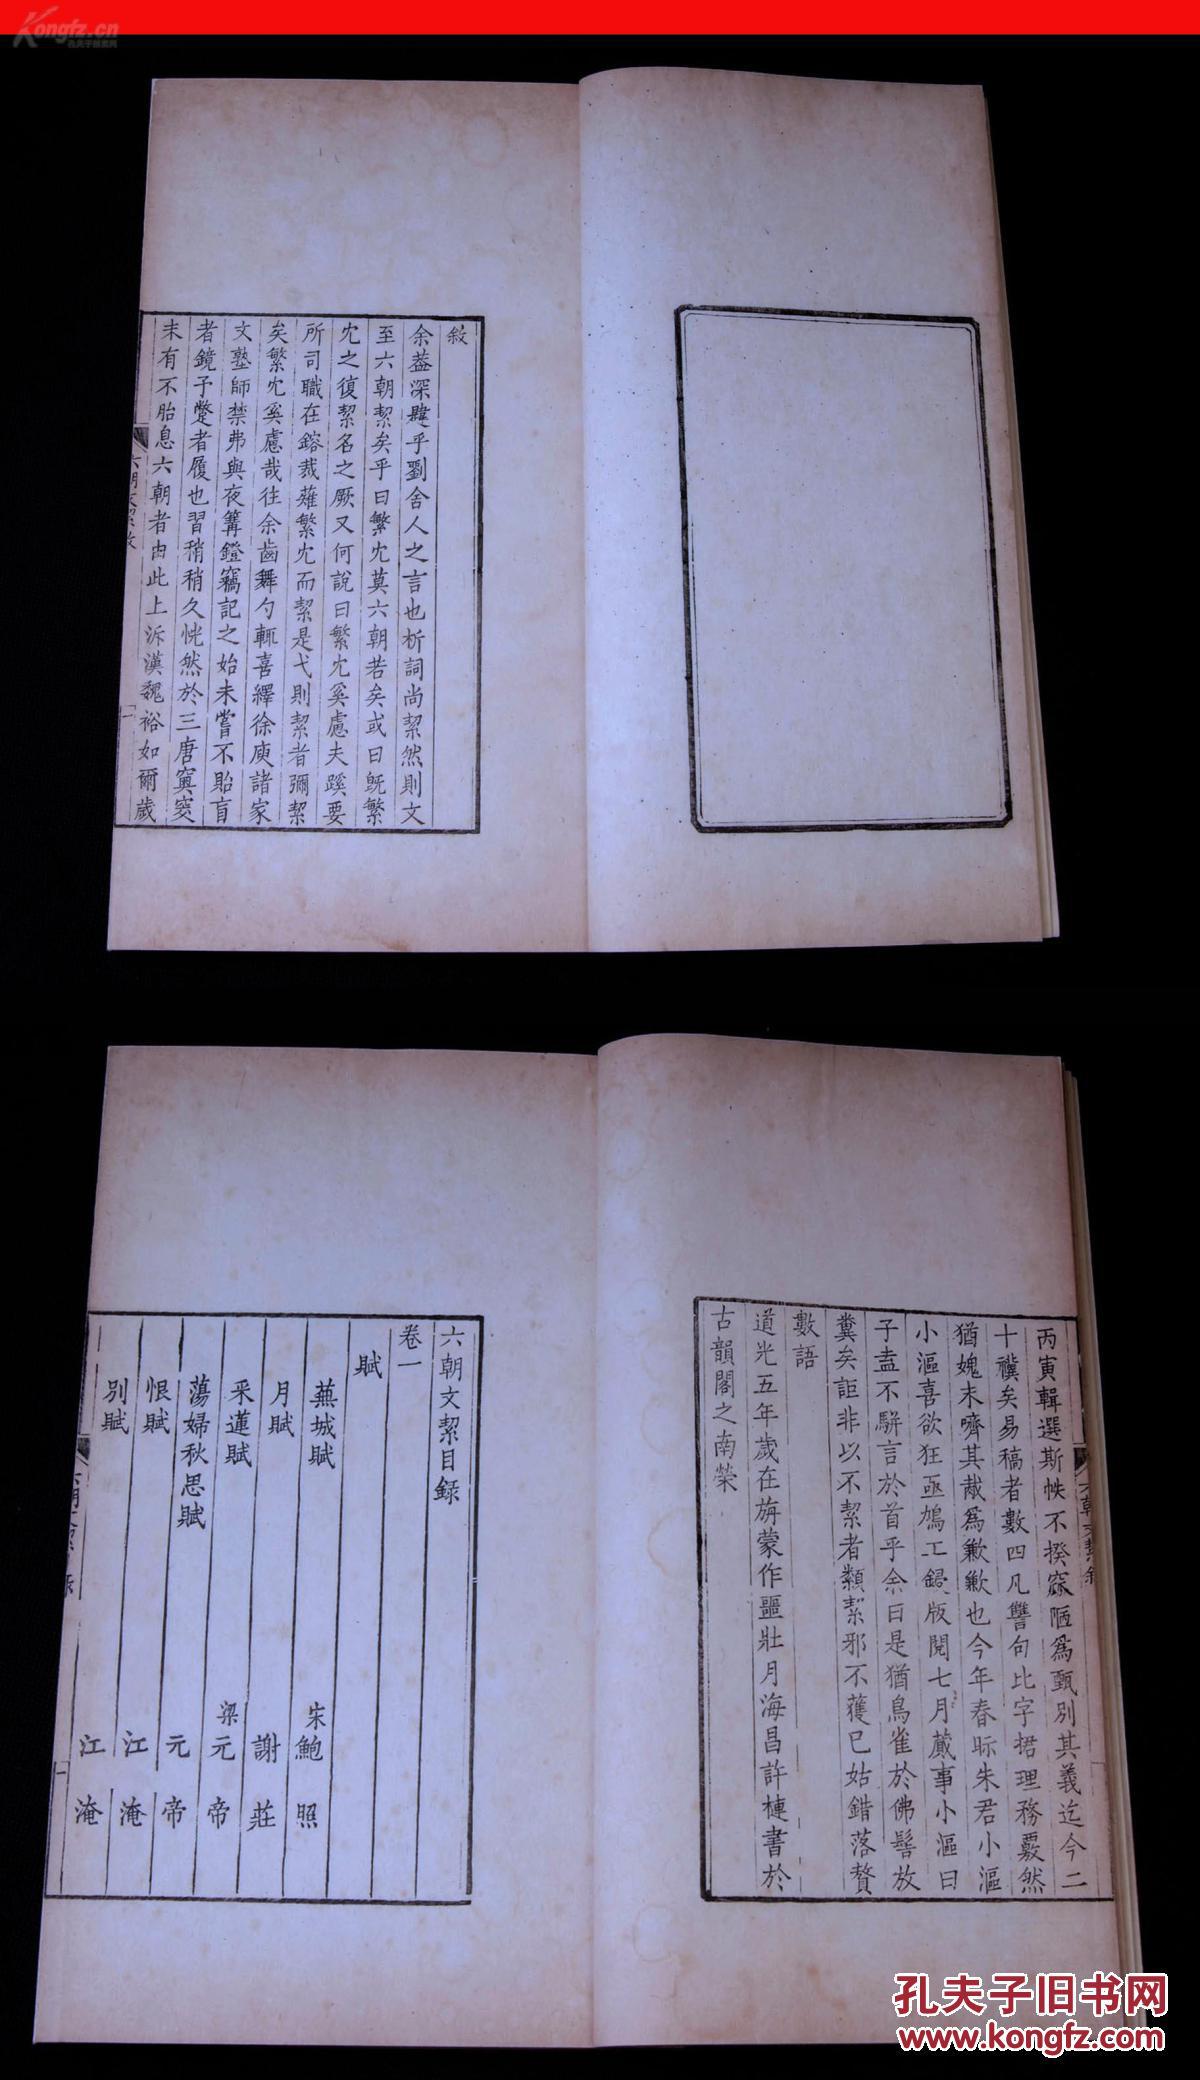 Kongfz.cn
孔夫子旧书网
敘
余葢深韙乎劉舍人之言也析詞尚絜然則文
至六朝絜矣乎曰繁冘莫六朝若矣或曰旣繁
冘之復絜名之厥又何說曰繁冘奚慮夫蹊要
所司職在鎔裁薙繁冘而絜是弋則絜者彌絜
矣繁冘奚慮哉往余齒舞勺輒喜繹徐庾諸家
文塾師禁弗與夜篝鐙竊記之始未嘗不貽盲
者鏡予躄者履也習稍稍久恍然於三唐奧窔
未有不胎息六朝者由此上泝漢魏裕如爾歲
六朝文絜敘
一
丙寅輯選斯帙不揆窾陋爲甄別其義迄今二
十禩矣易稿者數四凡讐句比字捃理務覈然
猶媿未嚌其胾爲歉歉也今年春眎朱君小漚
小漚喜欲狂亟鳩工鋟版閱七月蕆事小漚曰
子盍不駢言於首乎余曰是猶鳥雀於佛髻放
糞矣詎非以不絜者纇絜邪不獲已姑錯落贅
數語
道光五年歲在旃蒙作噩壯月海昌許槤書於
古韻閣之南榮
六朝文絜敘
六朝文絜目録
卷一
賦
蕪城賦 宋鮑照
月賦 謝莊
采蓮賦 梁元帝
蕩婦秋思賦 元帝
恨賦 江淹
別賦 江淹
一
孔夫子旧书网
www.kongfz.com